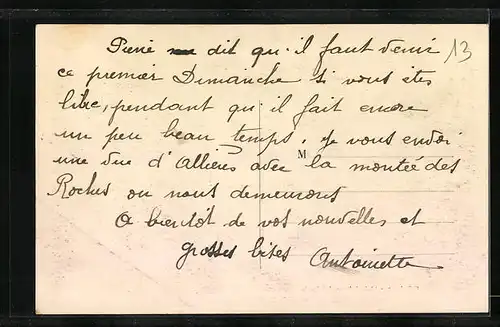 13
Pierre dit qu'il faut venir
ce premier Dimanche si vous êtes
libre, pendant qu'il fait encore
un peu beau temps. Je vous envoi
une vue d'Allières avec la montée des
M
Roches ou nous demeurons
A bientôt de vos nouvelles et
grosses bises Antoinette